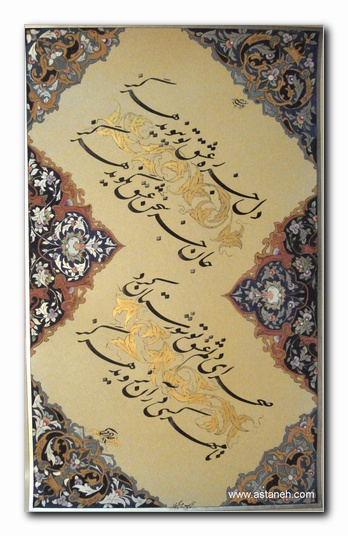 دل جز ره عشق تو نپوید هرگز
جان جز سخن عشق نگوید هرگز
صحرای دلم عشق تو شورستان کرد
تا مهر کسی در آن نروید هرگز
www.astaneh.com